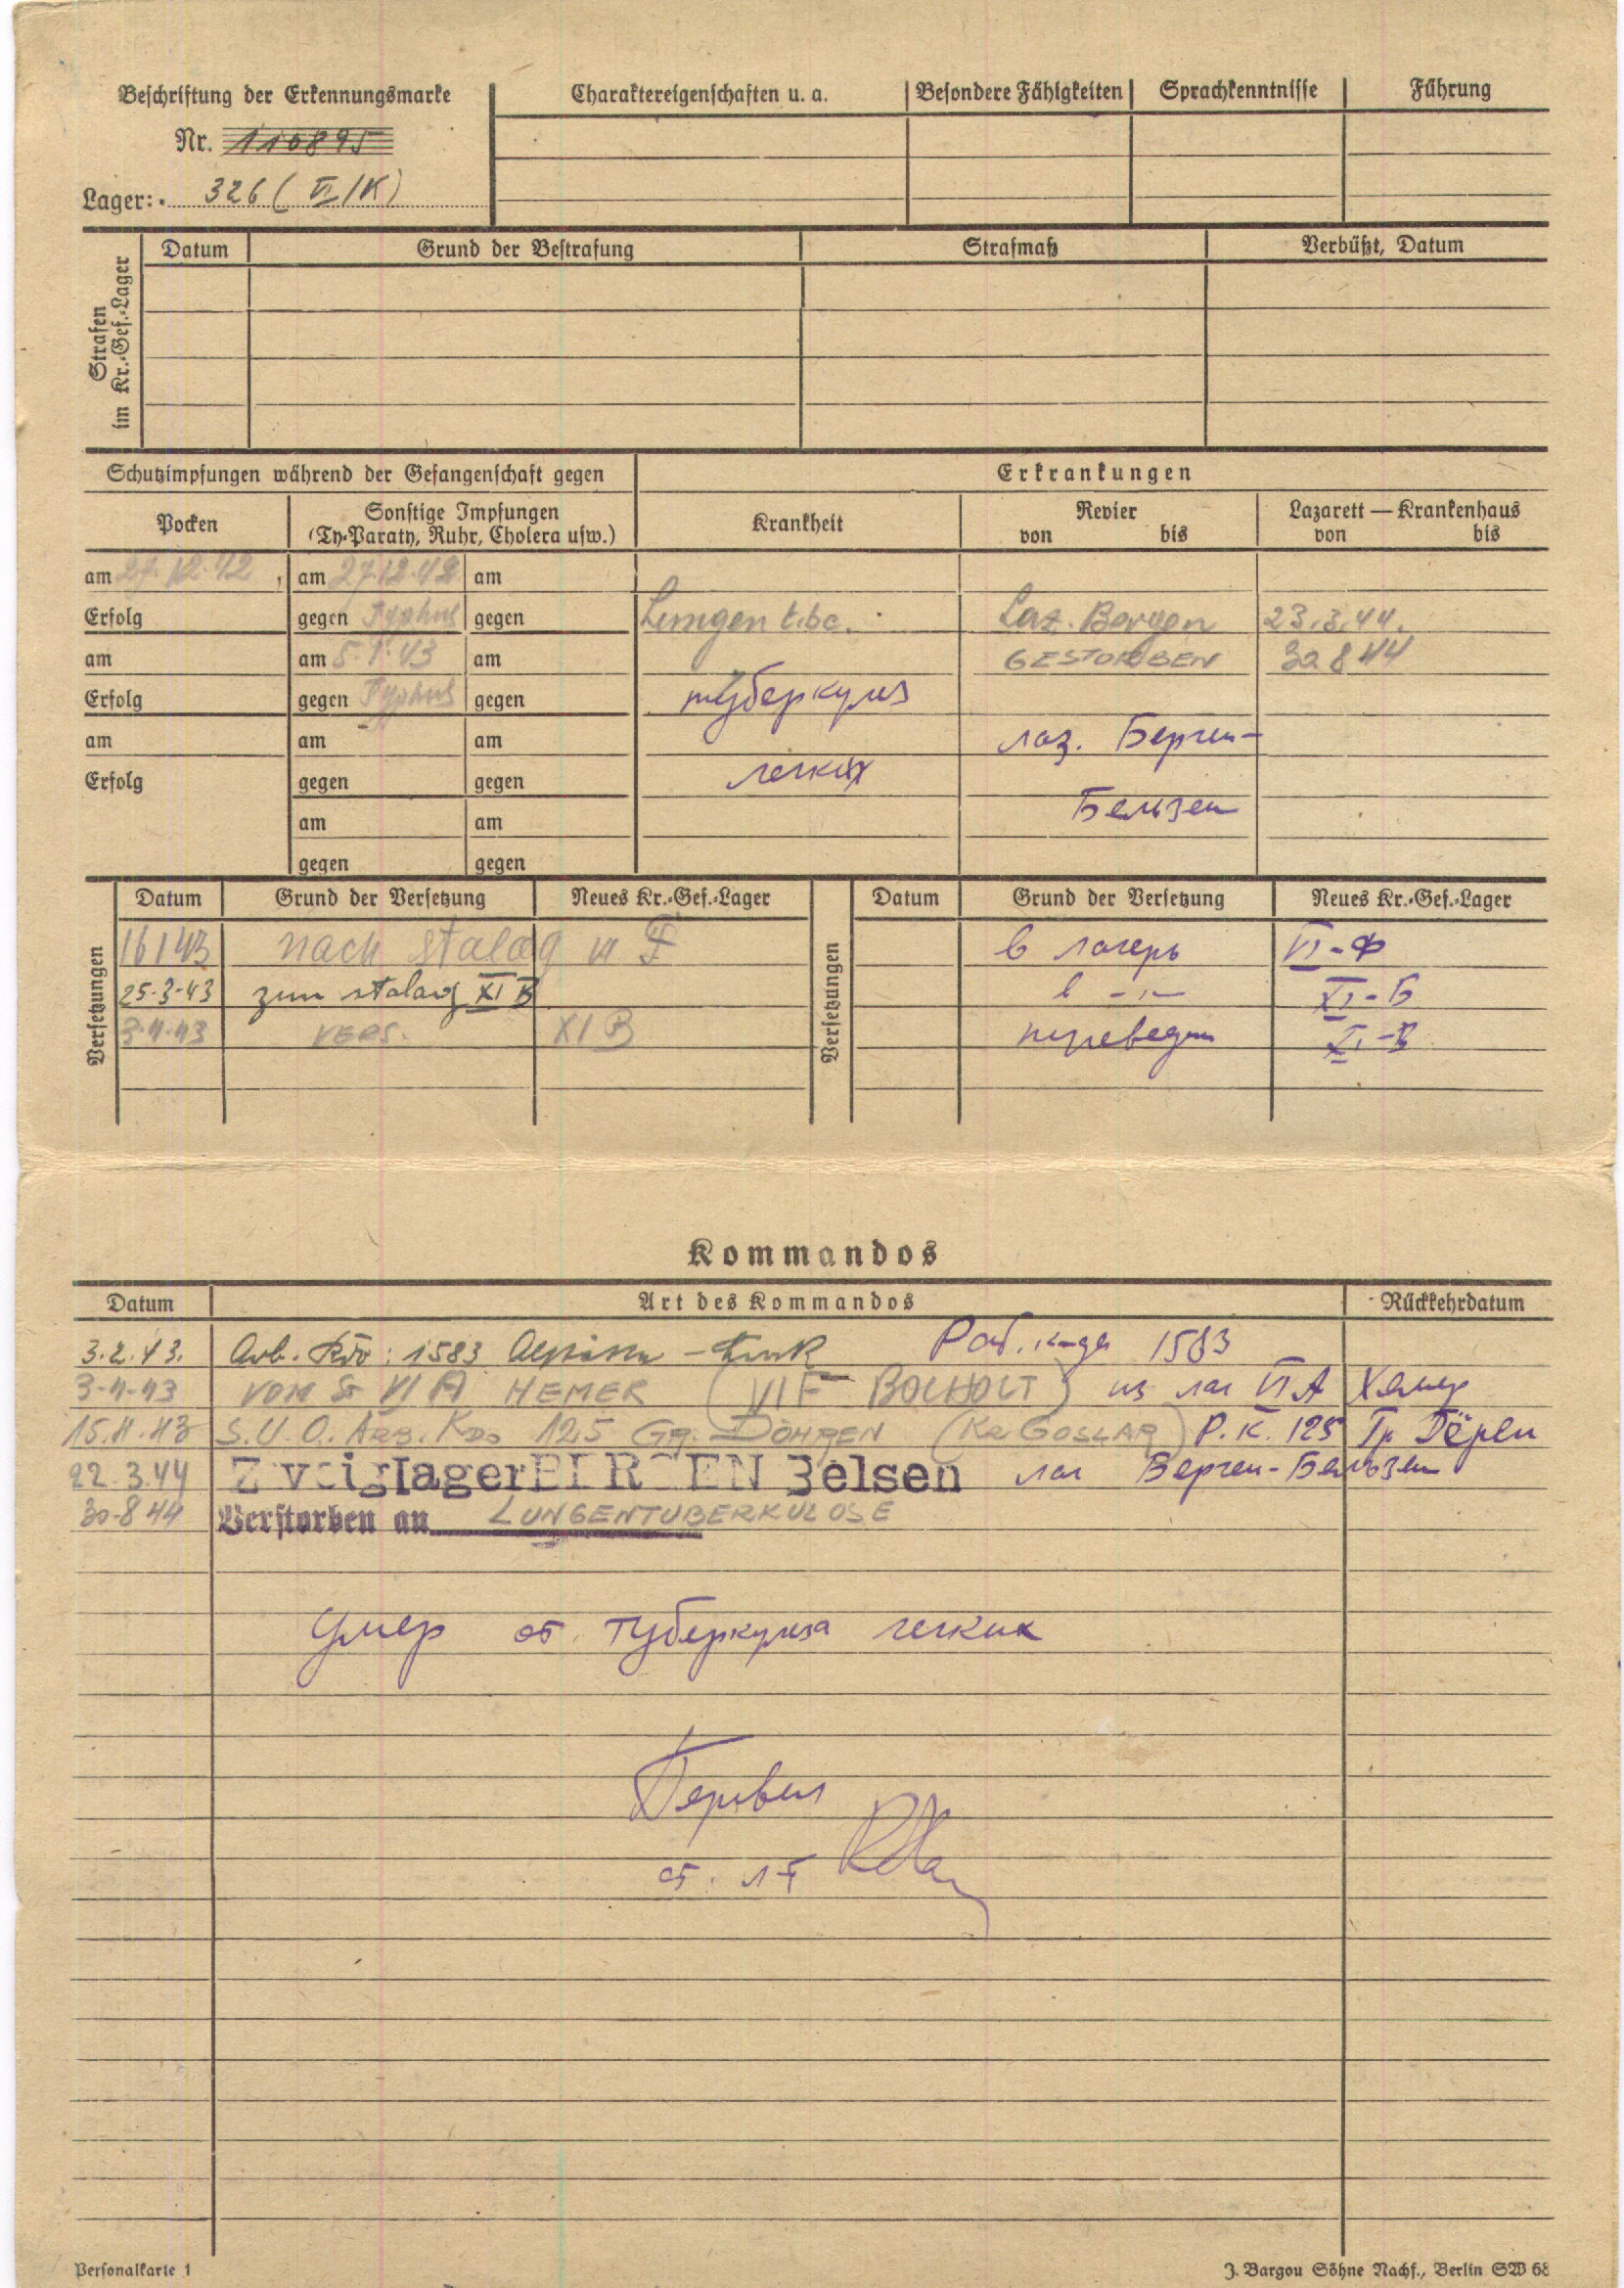 Beschriftung der Erkennungsmarke
Nr. 110895
Lager: 326 (VI/K)
Charaktereigenschaften u. a. Besondere Fähigkeiten Sprachkenntnisse Führung
Strafen im Kr.-Gef.-Lager
Datum Grund der Bestrafung Strafmaß Verbüßt, Datum
Schutzimpfungen während der Gefangenschaft gegen
Erkrankungen
Pocken Sonstige Impfungen
(Ty-Paraty, Ruhr, Cholera usw.)
Krankheit Revier Lazarett — Krankenhaus
von bis von bis
am 27.12.42, am 27.12.42 am
Erfolg gegen Typhus gegen Lungen tbc. Laz. Bergen 23.3.44.
am am 5.1.43 am GESTORBEN 30 8 44
Erfolg gegen Typhus gegen туберкулез
am am am лаз. Берген-
Erfolg gegen gegen легких
Бельзен
am am
gegen gegen
Versetzungen
Datum Grund der Versetzung Neues Kr.-Gef.-Lager
Versetzungen
Datum Grund der Versetzung Neues Kr.-Gef.-Lager
16 1 43 nach Stalag VI F в лагерь VI-Ф
25-3-43 zum Stalag XI B в -"- XI-Б
3-4-43 VERS. XI B переведен XI-В
Kommandos
Datum Art des Kommandos Rückkehrdatum
3.2.43. Arb. Kdo: 1583 Раб. к-да 1583
3-4-43 VOM St VI A HEMER (VI F BOCHOLT) из лаг VI А Хемер
15.11.43 S.U.O. ARB. KDO 125 GR. DÖHREN (KR GOSLAR) Р.К. 125 Гр Дёрен
22 3.44 Zweiglager BERGEN Belsen лаг Берген-Бельзен
30-8 44 Verstorben an LUNGENTUBERKULOSE
Умер от туберкулеза легких
Перевел
ст. л-т
Personalkarte 1
J. Bargou Söhne Nachf., Berlin SW 68